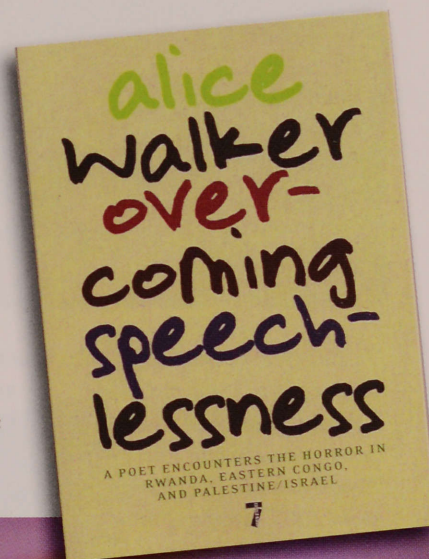 alice
walker
over-
coming
speech-
lessness
A POET ENCOUNTERS THE HORROR IN
RWANDA, EASTERN CONGO,
AND PALESTINE/ISRAEL
7